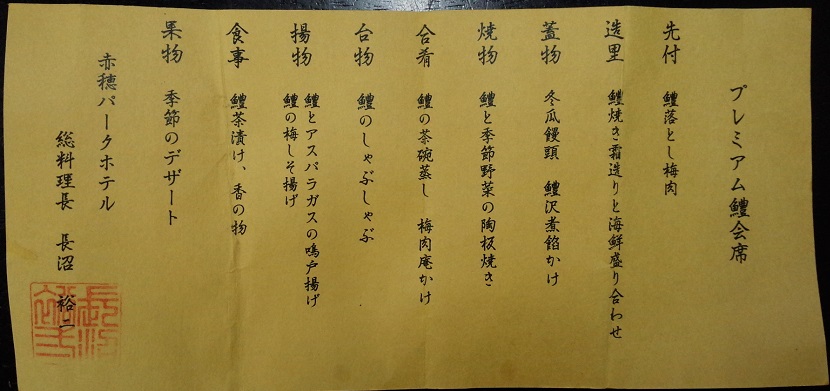 プレミアム鱧会席
先付 鱧落とし梅肉
造里 鱧焼き霜造りと海鮮盛り合わせ
蓋物 冬瓜饅頭 鱧沢煮餡かけ
焼物 鱧と季節野菜の陶板焼き
合肴 鱧の茶碗蒸し 梅肉庵かけ
台物 鱧のしゃぶしゃぶ
揚物 鱧とアスパラガスの鳴戸揚げ
鱧の梅しそ揚げ
食事 鱧茶漬け、香の物
果物 季節のデザート
赤穂パークホテル
総料理長 長沼 裕二